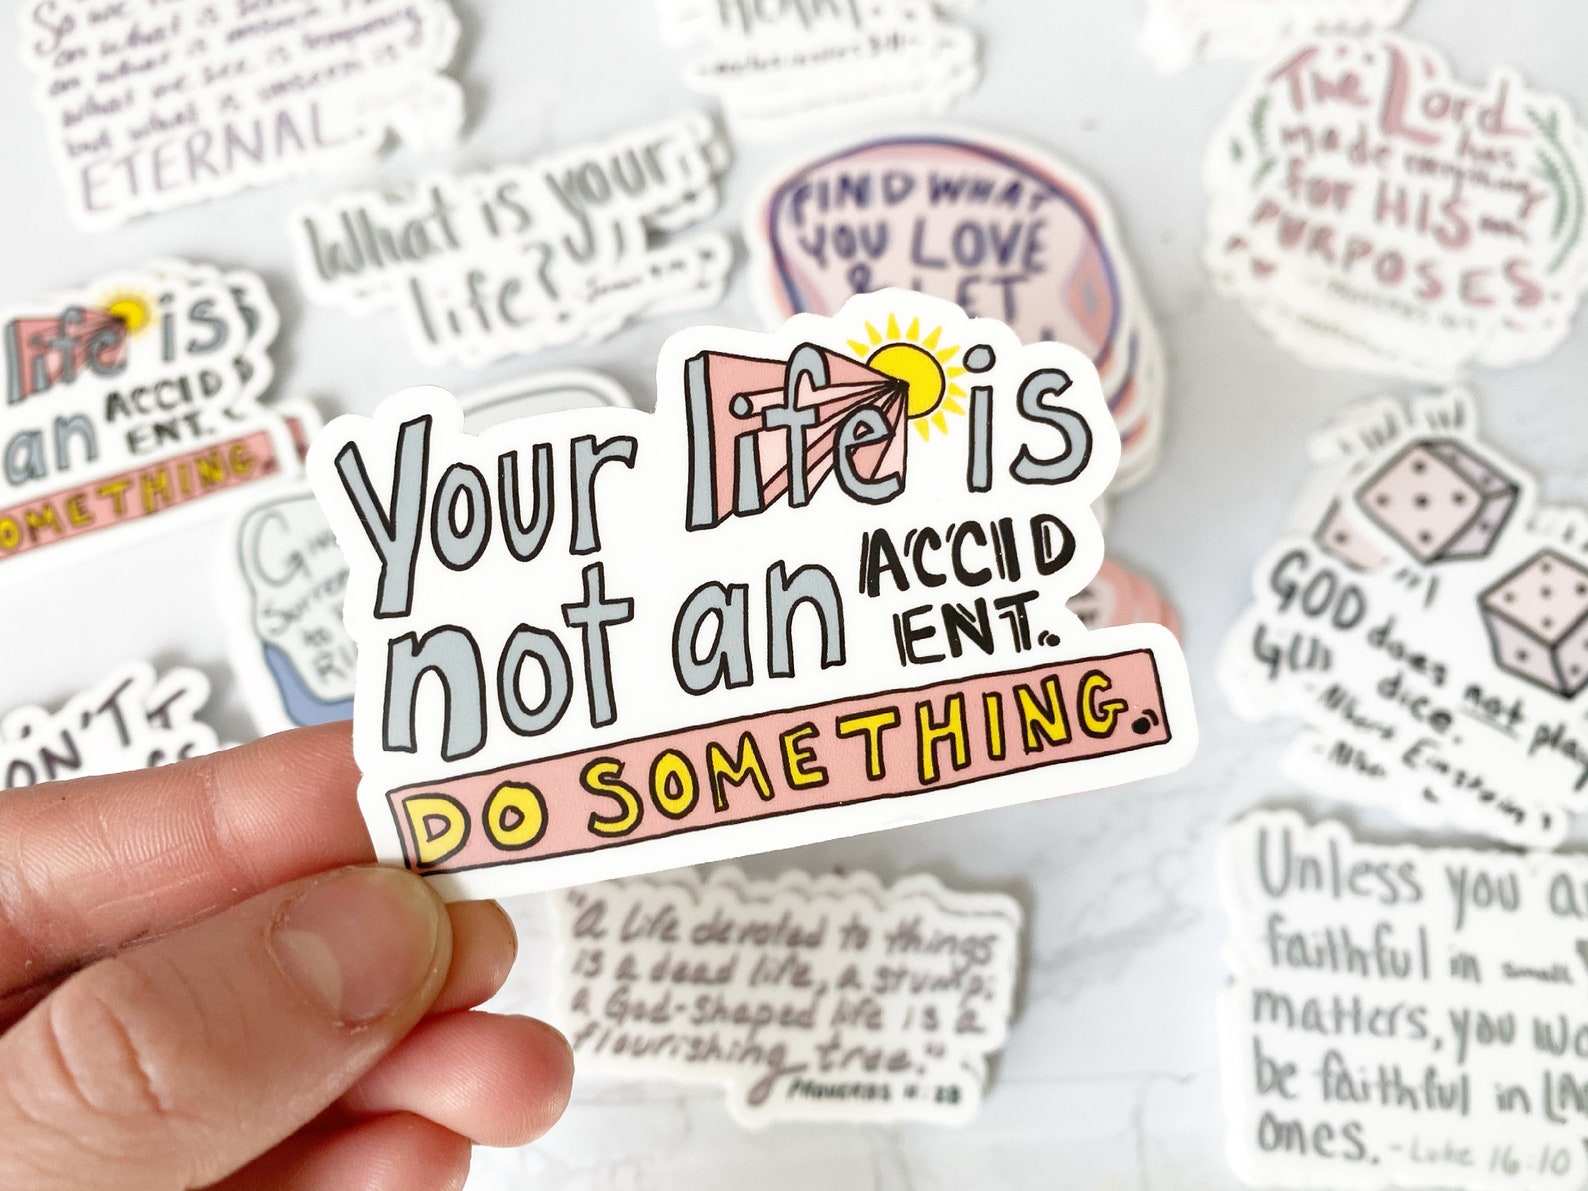 on what is
on what is
what we see is temporary
but what is unseen is
ETERNAL.
HEART.
The Lord
has
made everything
for HIS
PURPOSES.
What is your
life?
FIND WHAT
YOU LOVE
& LET
life is
an ACCID
ENT.
OMETHING.
Your life is
not an ACCID
ENT.
DO SOMETHING.
GOD does not play
dice.
- Albert Einstein
ON'T
"A life devoted to things
is a dead life, a stump;
a God-shaped life is a
flourishing tree."
Proverbs 11:28
Unless you a
faithful in small
matters, you wo
be faithful in LA
ones. - Luke 16:10